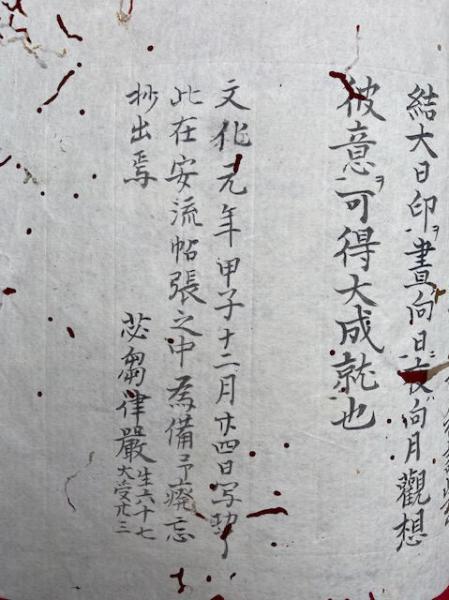 結大日印ヲ晝向日夜向月觀想
彼意ヲ可得大成就也
文化元年甲子十二月廿四日写功了
此在安流帖張之中為備予癈忘
抄出焉
苾蒭律嚴
生六十七
大受廾三